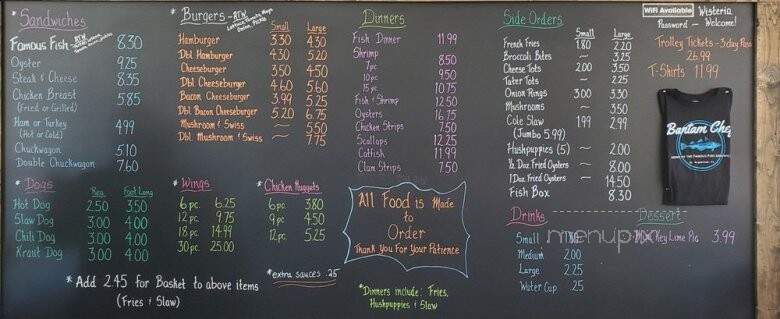 * Sandwiches
Famous Fish - ATW 8.30
Oyster 9.25
Steak & Cheese 8.35
Chicken Breast 5.85
(Fried or Grilled)
Ham or Turkey 4.99
(Hot or Cold)
Chuckwagon 5.10
Double Chuckwagon 7.60
* Burgers - ATW
Lettuce, Tomato, Mayo
Onion, Pickle
Small Large
Hamburger 3.30 4.30
Dbl Hamburger 4.30 5.20
Cheeseburger 3.50 4.50
Dbl Cheeseburger 4.60 5.60
Bacon Cheeseburger 3.99 5.25
Dbl Bacon Cheeseburger 5.20 6.75
Mushroom & Swiss ~ 5.50
Dbl. Mushroom & Swiss ~ 7.75
Dinners
Fish Dinner 11.99
Shrimp
7 pc. 8.50
10 pc. 9.50
15 pc. 10.75
Fish & Shrimp 12.50
Oysters 16.75
Chicken Strips 7.50
Scallops 12.25
Catfish 11.99
Clam Strips 7.50
Side Orders
Small Large
French Fries 1.80 2.20
Broccoli Bites ~ 3.25
Cheese Tots 2.00 3.50
Tater Tots ~ 2.25
Onion Rings 3.00 3.30
Mushrooms ~ 3.50
Cole Slaw 1.99 2.99
(Jumbo 5.99)
Hushpuppies (5) ~ 2.00
½ Doz. Fried Oysters ~ 8.00
1 Doz. Fried Oysters ~ 14.50
Fish Box 8.30
WiFi Available Wisteria
Password - Welcome!
Trolley Tickets - 3 day Pass
26.99
T-Shirts 11.99
Bantam Chef
* Dogs
Reg. Foot Long
Hot Dog 2.50 3.50
Slaw Dog 3.00 4.00
Chili Dog 3.00 4.00
Kraut Dog 3.00 4.00
* Wings
6 pc. 6.25
12 pc. 9.75
18 pc. 14.99
30 pc. 25.00
* Chicken Nuggets
6 pc. 3.80
9 pc. 4.50
12 pc. 5.25
*extra sauces .25
* Add 2.45 for Basket to above items
(Fries & Slaw)
All Food is Made
to
Order
Thank You For Your Patience
*Dinners include: Fries,
Hushpuppies & Slaw
Drinks
Small
Medium 2.00
Large 2.25
Water Cup .25
Dessert
Key Lime Pie 3.99
menupix